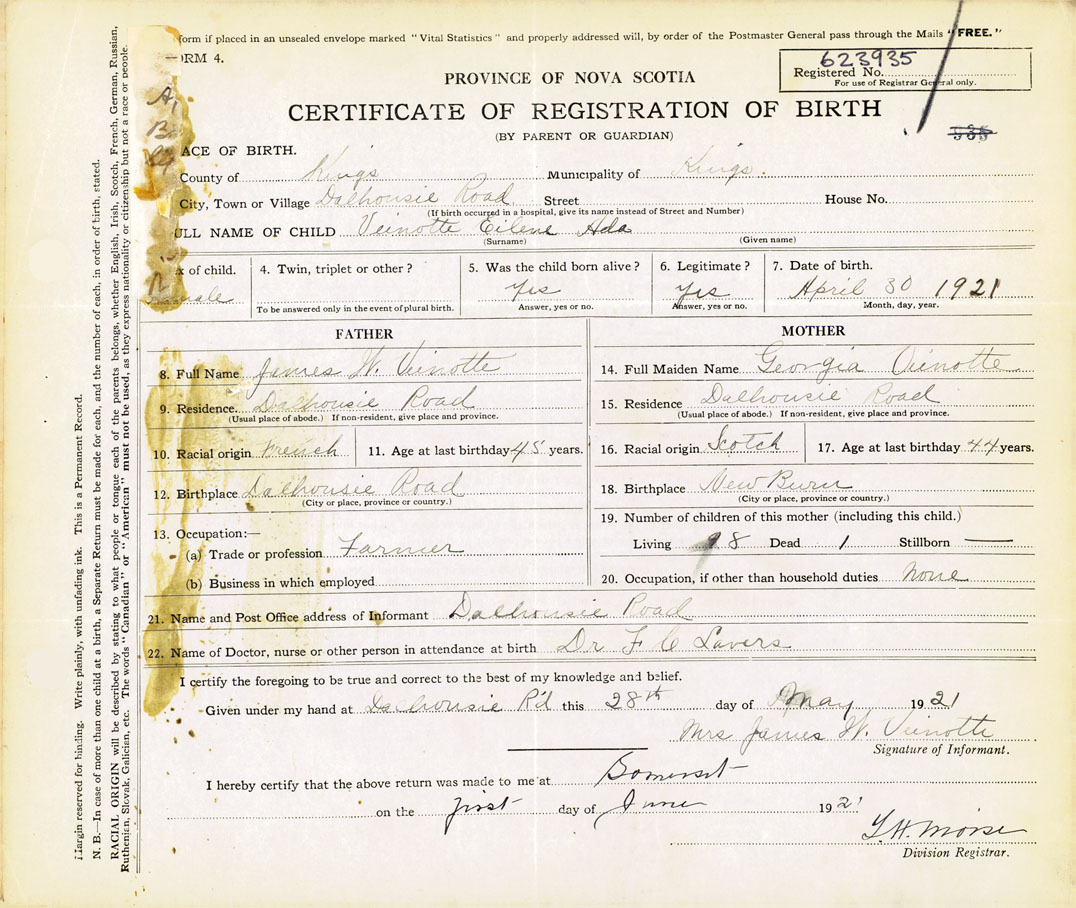 form if placed in an unsealed envelope marked "Vital Statistics" and properly addressed will, by order of the Postmaster General pass through the Mails "FREE."
RM 4.
623935
Registered No.
For use of Registrar General only.
PROVINCE OF NOVA SCOTIA
CERTIFICATE OF REGISTRATION OF BIRTH
(BY PARENT OR GUARDIAN)
935
ACE OF BIRTH.
County of Kings Municipality of Kings.
City, Town or Village Dalhousie Road Street House No.
(If birth occurred in a hospital, give its name instead of Street and Number)
ULL NAME OF CHILD Veinotte Eilene Ada
(Surname) (Given name)
x of child. 4. Twin, triplet or other? 5. Was the child born alive? 6. Legitimate? 7. Date of birth.
male Yes Yes April 30 1921
To be answered only in the event of plural birth. Answer, yes or no. Answer, yes or no. Month, day, year.
FATHER
8. Full Name James W. Veinotte
9. Residence. Dalhousie Road
(Usual place of abode.) If non-resident, give place and province.
10. Racial origin French 11. Age at last birthday 45 years.
12. Birthplace Dalhousie Road
(City or place, province or country.)
13. Occupation:—
(a) Trade or profession Farmer
(b) Business in which employed
MOTHER
14. Full Maiden Name Georgia Veinotte
15. Residence Dalhousie Road
(Usual place of abode.) If non-resident, give place and province.
16. Racial origin Scotch 17. Age at last birthday 44 years.
18. Birthplace New Burn
(City or place, province or country.)
19. Number of children of this mother (including this child.)
Living 8 Dead 1 Stillborn —
20. Occupation, if other than household duties None
21. Name and Post Office address of Informant Dalhousie Road
22. Name of Doctor, nurse or other person in attendance at birth Dr F C Lavers
I certify the foregoing to be true and correct to the best of my knowledge and belief.
Given under my hand at Dalhousie R'd this 28th day of May 1921
Mrs James W. Veinotte
Signature of Informant.
I hereby certify that the above return was made to me at Somerset
on the first day of June 1921
Morse
Division Registrar.
Margin reserved for binding. Write plainly, with unfading ink. This is a Permanent Record.
N. B.—In case of more than one child at a birth, a Separate Return must be made for each, and the number of each, in order of birth, stated.
RACIAL ORIGIN will be described by stating to what people or tongue each of the parents belongs, whether English, Irish, Scotch, French, German, Russian,
Ruthenian, Slovak, Galician, etc. The words "Canadian" or "American" must not be used, as they express nationality or citizenship but not a race or people.